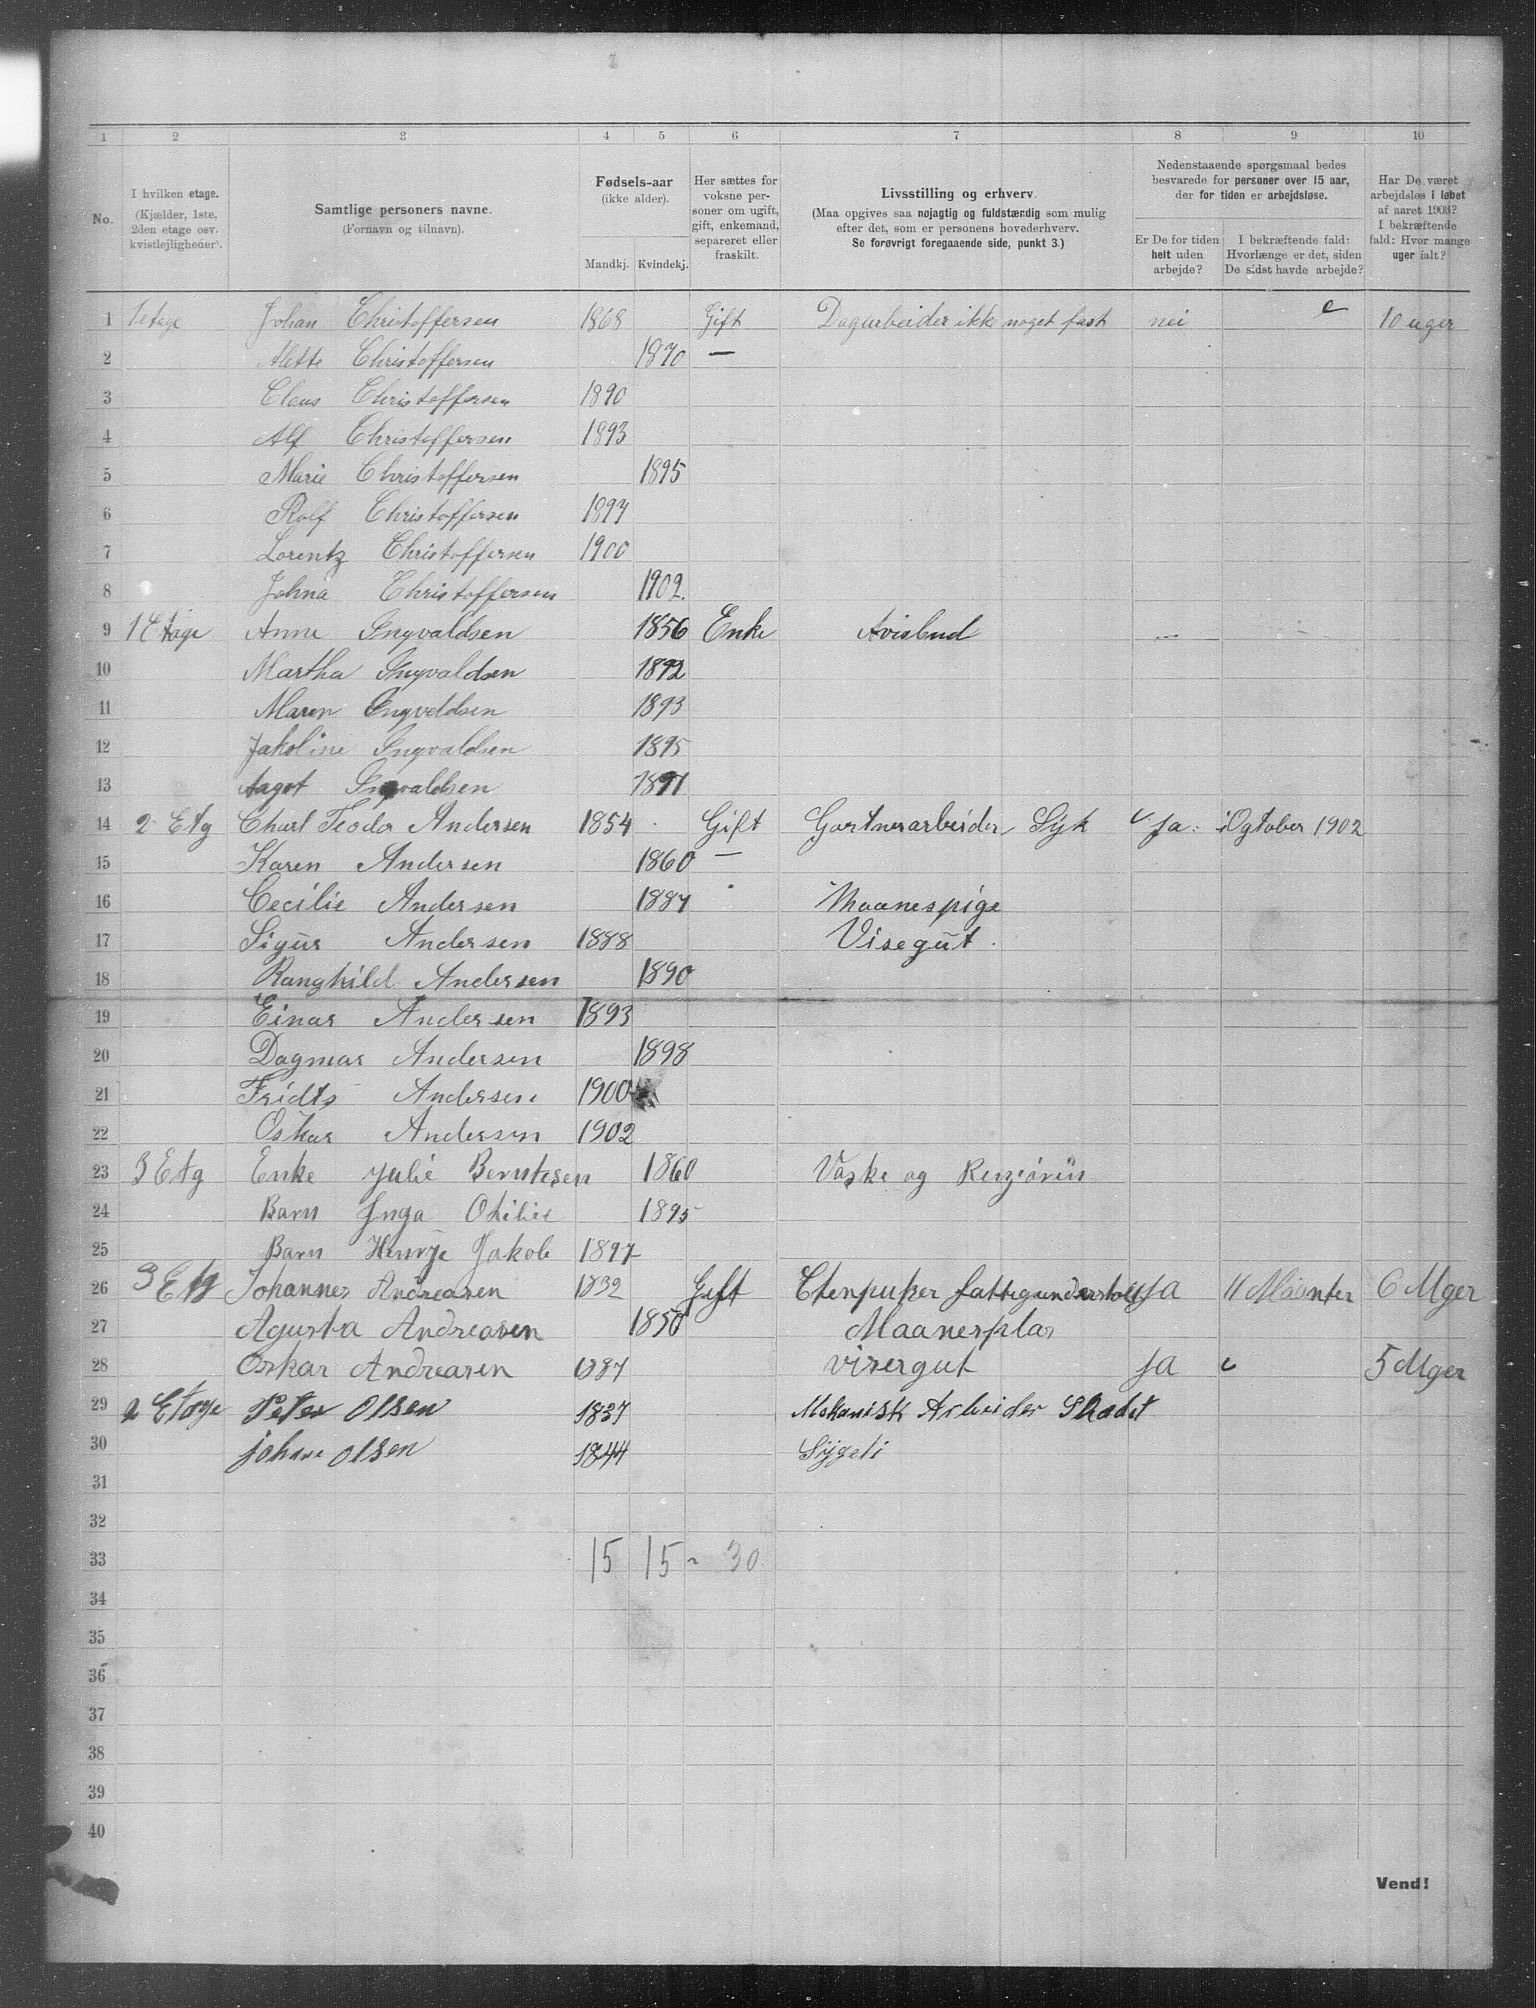 1 2 3 4 5 6 7 8 9 10
No. I hvilken etage. (Kjælder, 1ste, 2den etage osv. kvistlejligheder). Samtlige personers navne. (Fornavn og tilnavn). Fødsels-aar (ikke alder). Mandkj. Kvindekj. Her sættes for voksne personer om ugift, gift, enkemand, separeret eller fraskilt. Livsstilling og erhverv. (Maa opgives saa nøjagtig og fuldstændig som mulig efter det, som er personens hovederhverv. Se forøvrigt foregaaende side, punkt 3.) Nedenstaaende spørgsmaal bedes besvarede for personer over 15 aar, der for tiden er arbejdsløse. Er De for tiden helt uden arbejde? I bekræftende fald: Hvorlænge er det, siden De sidst havde arbejde? Har De været arbejdsløs i løbet af aaret 1903? I bekræftende fald: Hvor mange uger ialt?
1 1 etage Johan Christoffersen 1868 Gift Dagarbeider ikke noget fast nei 10 uger
2 Mette Christoffersen 1870 —
3 Claus Christoffersen 1890
4 Alf Christoffersen 1893
5 Marie Christoffersen 1895
6 Rolf Christoffersen 1897
7 Lorentz Christoffersen 1900
8 Johna Christoffersen 1902.
9 1 Etage Anne Ingvaldsen 1856 Enke Avisbud
10 Martha Ingvaldsen 1892
11 Maren Engveldsen 1893
12 Jakoline Ingvaldsen 1895
13 Aagot Ingvaldsen
14 2 Etg Charl Teodor Andersen 1854 Gift Gartnerarbeider Syk ja. i Ogtober 1902
15 Karen Andersen 1860 —
16 Cecilie Andersen 1887 Maanespige
17 Sigur Andersen 1888 Visegut.
18 Ranghild Andersen 1890
19 Einar Andersen 1893
20 Dagmar Andersen 1898
21 Fridts Andersen 1900
22 Oskar Andersen 1902
23 3 Etg Enke Julie Berntesen 1860 Vaske og
24 Barn Inga Otilie 1895
25 Barn Henrye Jakob 1897
26 3 Etg Johannes Andreasen 1832 Gift ja 11 Maanter 6 Uger
27 Agusta Andreasen 1850 Maanesplas
28 Oskar Andreasen 1887 visergut ja 5 Uger
29 2 Etage Peter Olsen 1837 Mekanisk Arbeider Skadet
30 Johane Olsen 1844 Sygeti
31
32
33 15 15 - 30
34
35
36
37
38
39
40
Vend!